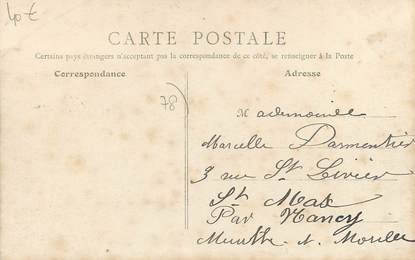 40€
CARTE POSTALE
Certains pays étrangers n'acceptant pas la correspondance de ce côté, se renseigner à la Poste
Correspondance
Adresse
78
Mademoiselle
Marcelle Parmentier
3 rue St Livier
St Max
Par Nancy
Meurthe-M. Moselle